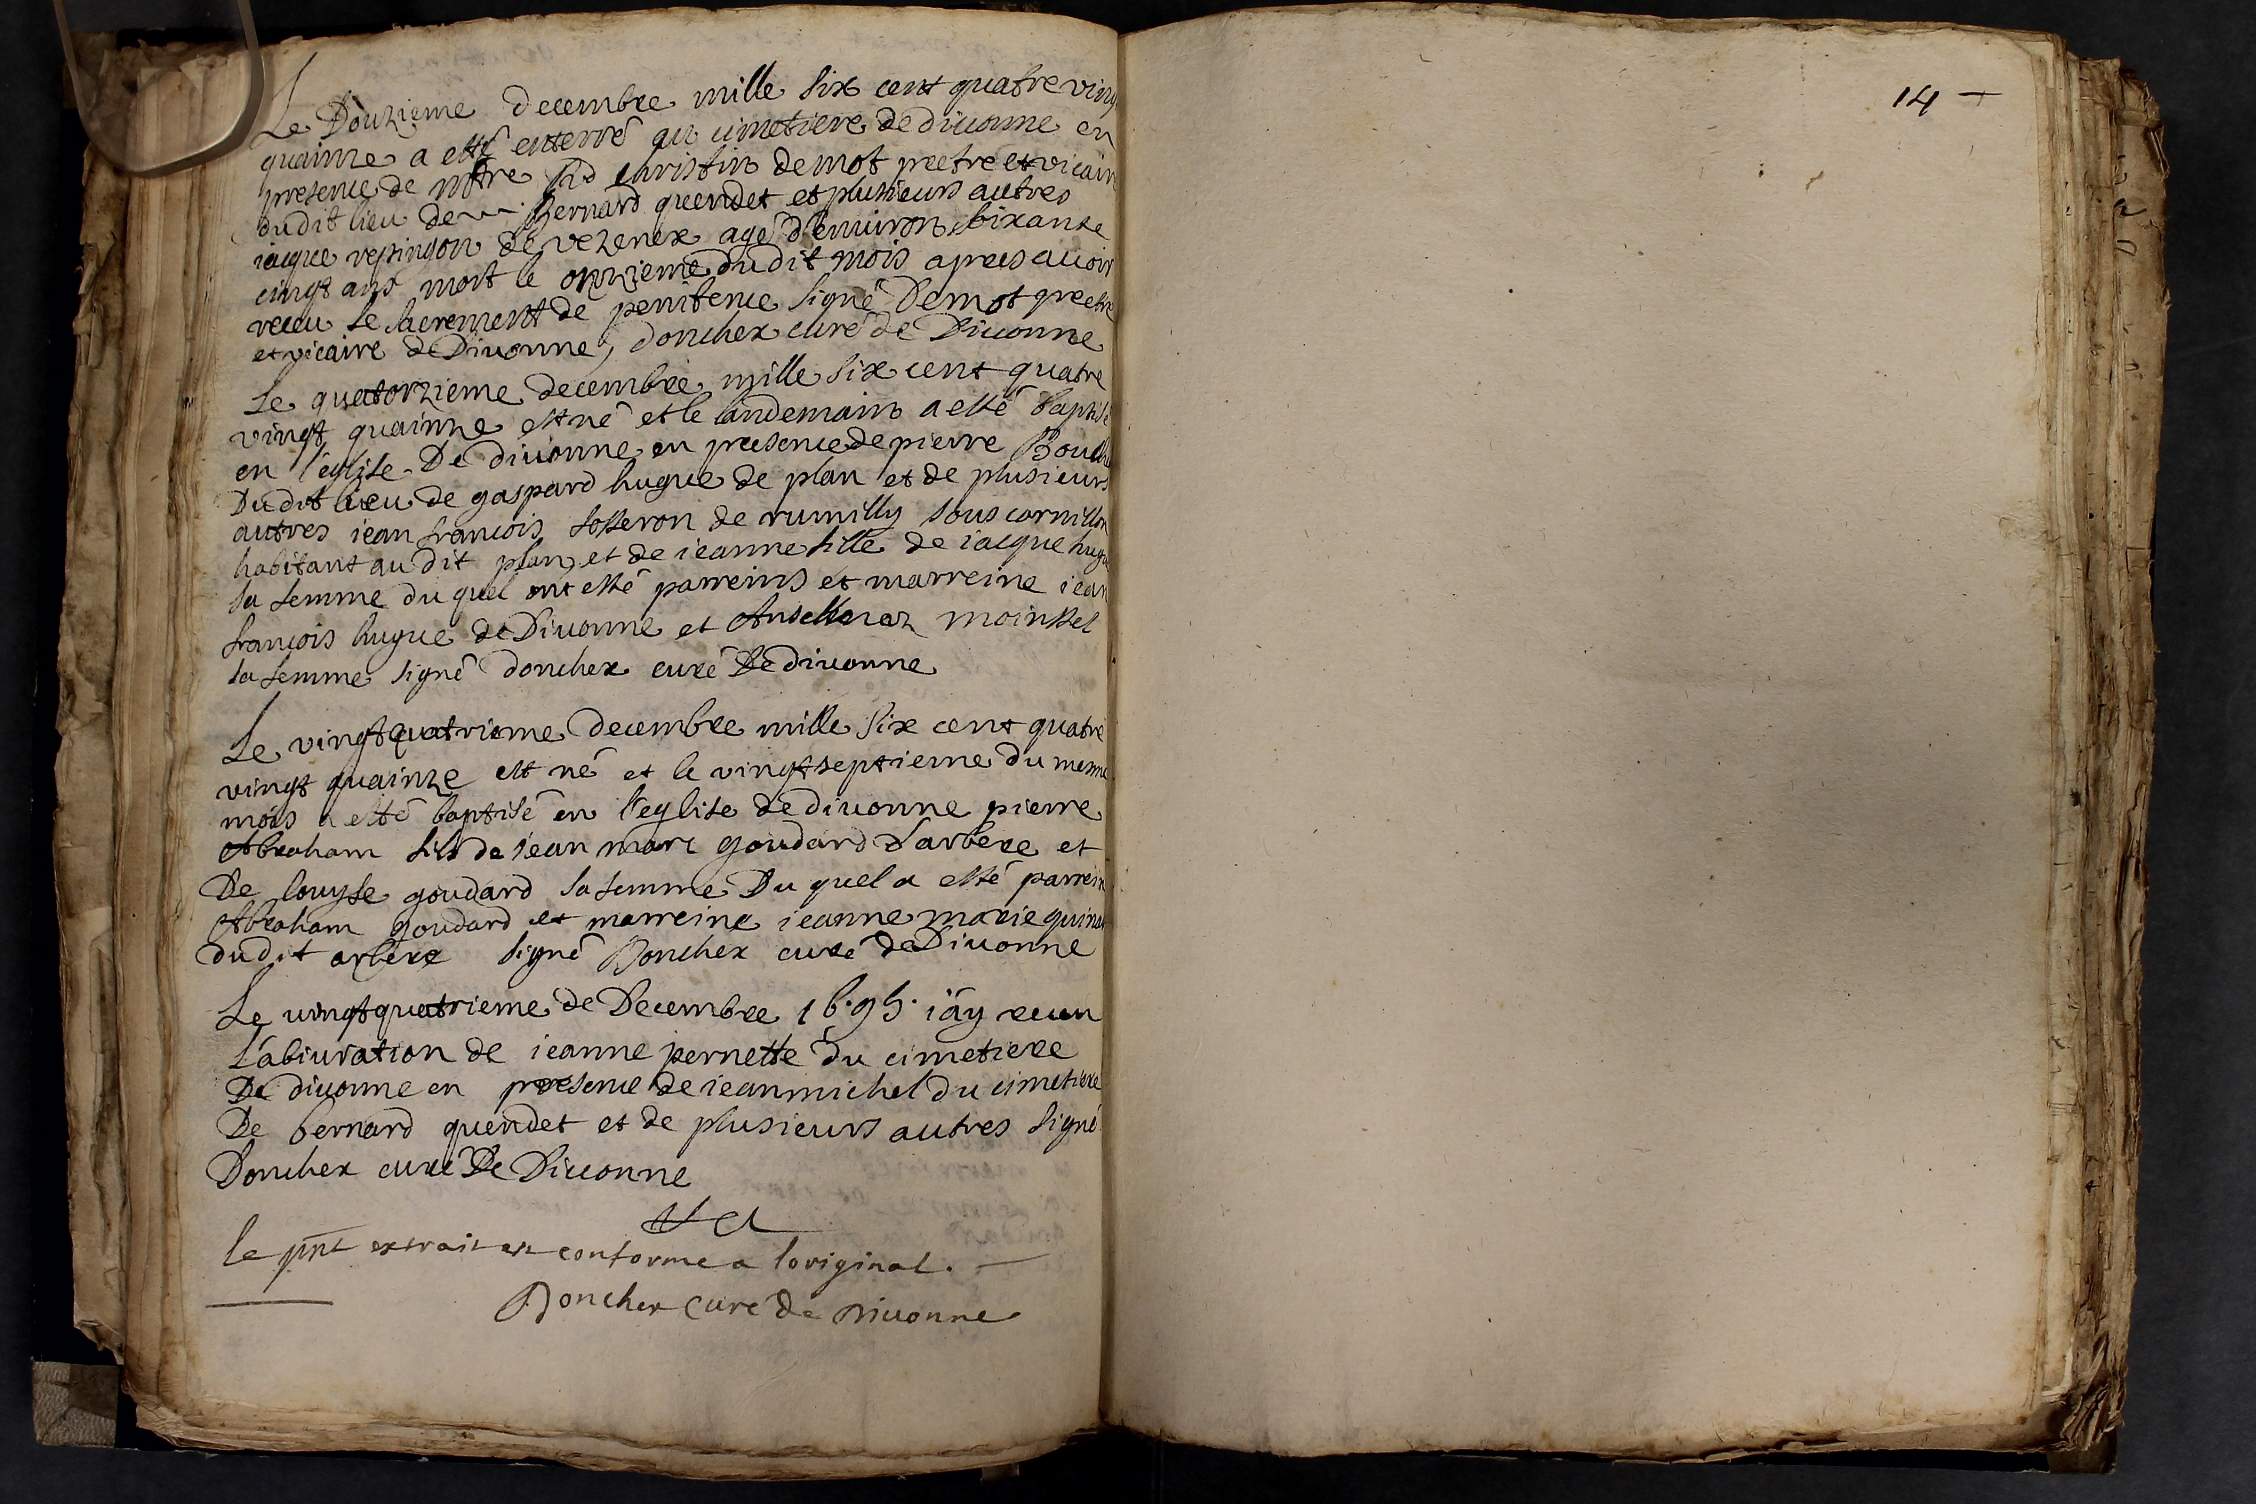 Le Douzieme decembre mille six cent quatre ving
quainze a esté enterré au cimetiere de divonne en
presence de christin demot preetre et vicaire
dudit lieu de Bernard quendet et plusieurs autres
iacque vepingon de vezenex agé d'environ soixante
cingt ans mort le onzieme dudit mois apres avoir
receu le sacrement de penitence signé Demot preetre
et vicaire de Divonne, donchex curé de Divonne
Le quatorzieme decembre mille six cent quatre
vingt quainze est né et le landemain a esté baptisé
en l'eglise De divonne en presence de pierre
Dudit lieu de gaspard hugue de plan et de plusieurs
autres iean francois sosseron de rumilly sous cornillon
habitant au dit plan et de ieanne fille de iacque hugue
sa femme du quel ont esté parreins et marreine iean
francois hugue de Divonne et
sa femme signé donchex curé De divonne
Le vingtquatrieme decembre mille six cent quatre
vingt quainze est né et le vingtseptieme du mesme
mois a esté baptisé en l'eglise de divonne pierre
Abraham fils de iean marc goudard d'arbere et
De louyse goudard sa femme Du quel a esté parrein
Abraham goudard et marreine ieanne marie
dudit arbere signé Donchex curé de Divonne
Le vingtquatrieme de Decembre 1695 i'ay receu
L'abiuration de ieanne pernette du cimetiere
De divonne en presence de iean michel du cimetiere
De bernard quendet et de plusieurs autres signé
Donchex curé De Divonne
le pnt extrait est conforme a loriginal.
Donchex Curé de Divonne
14